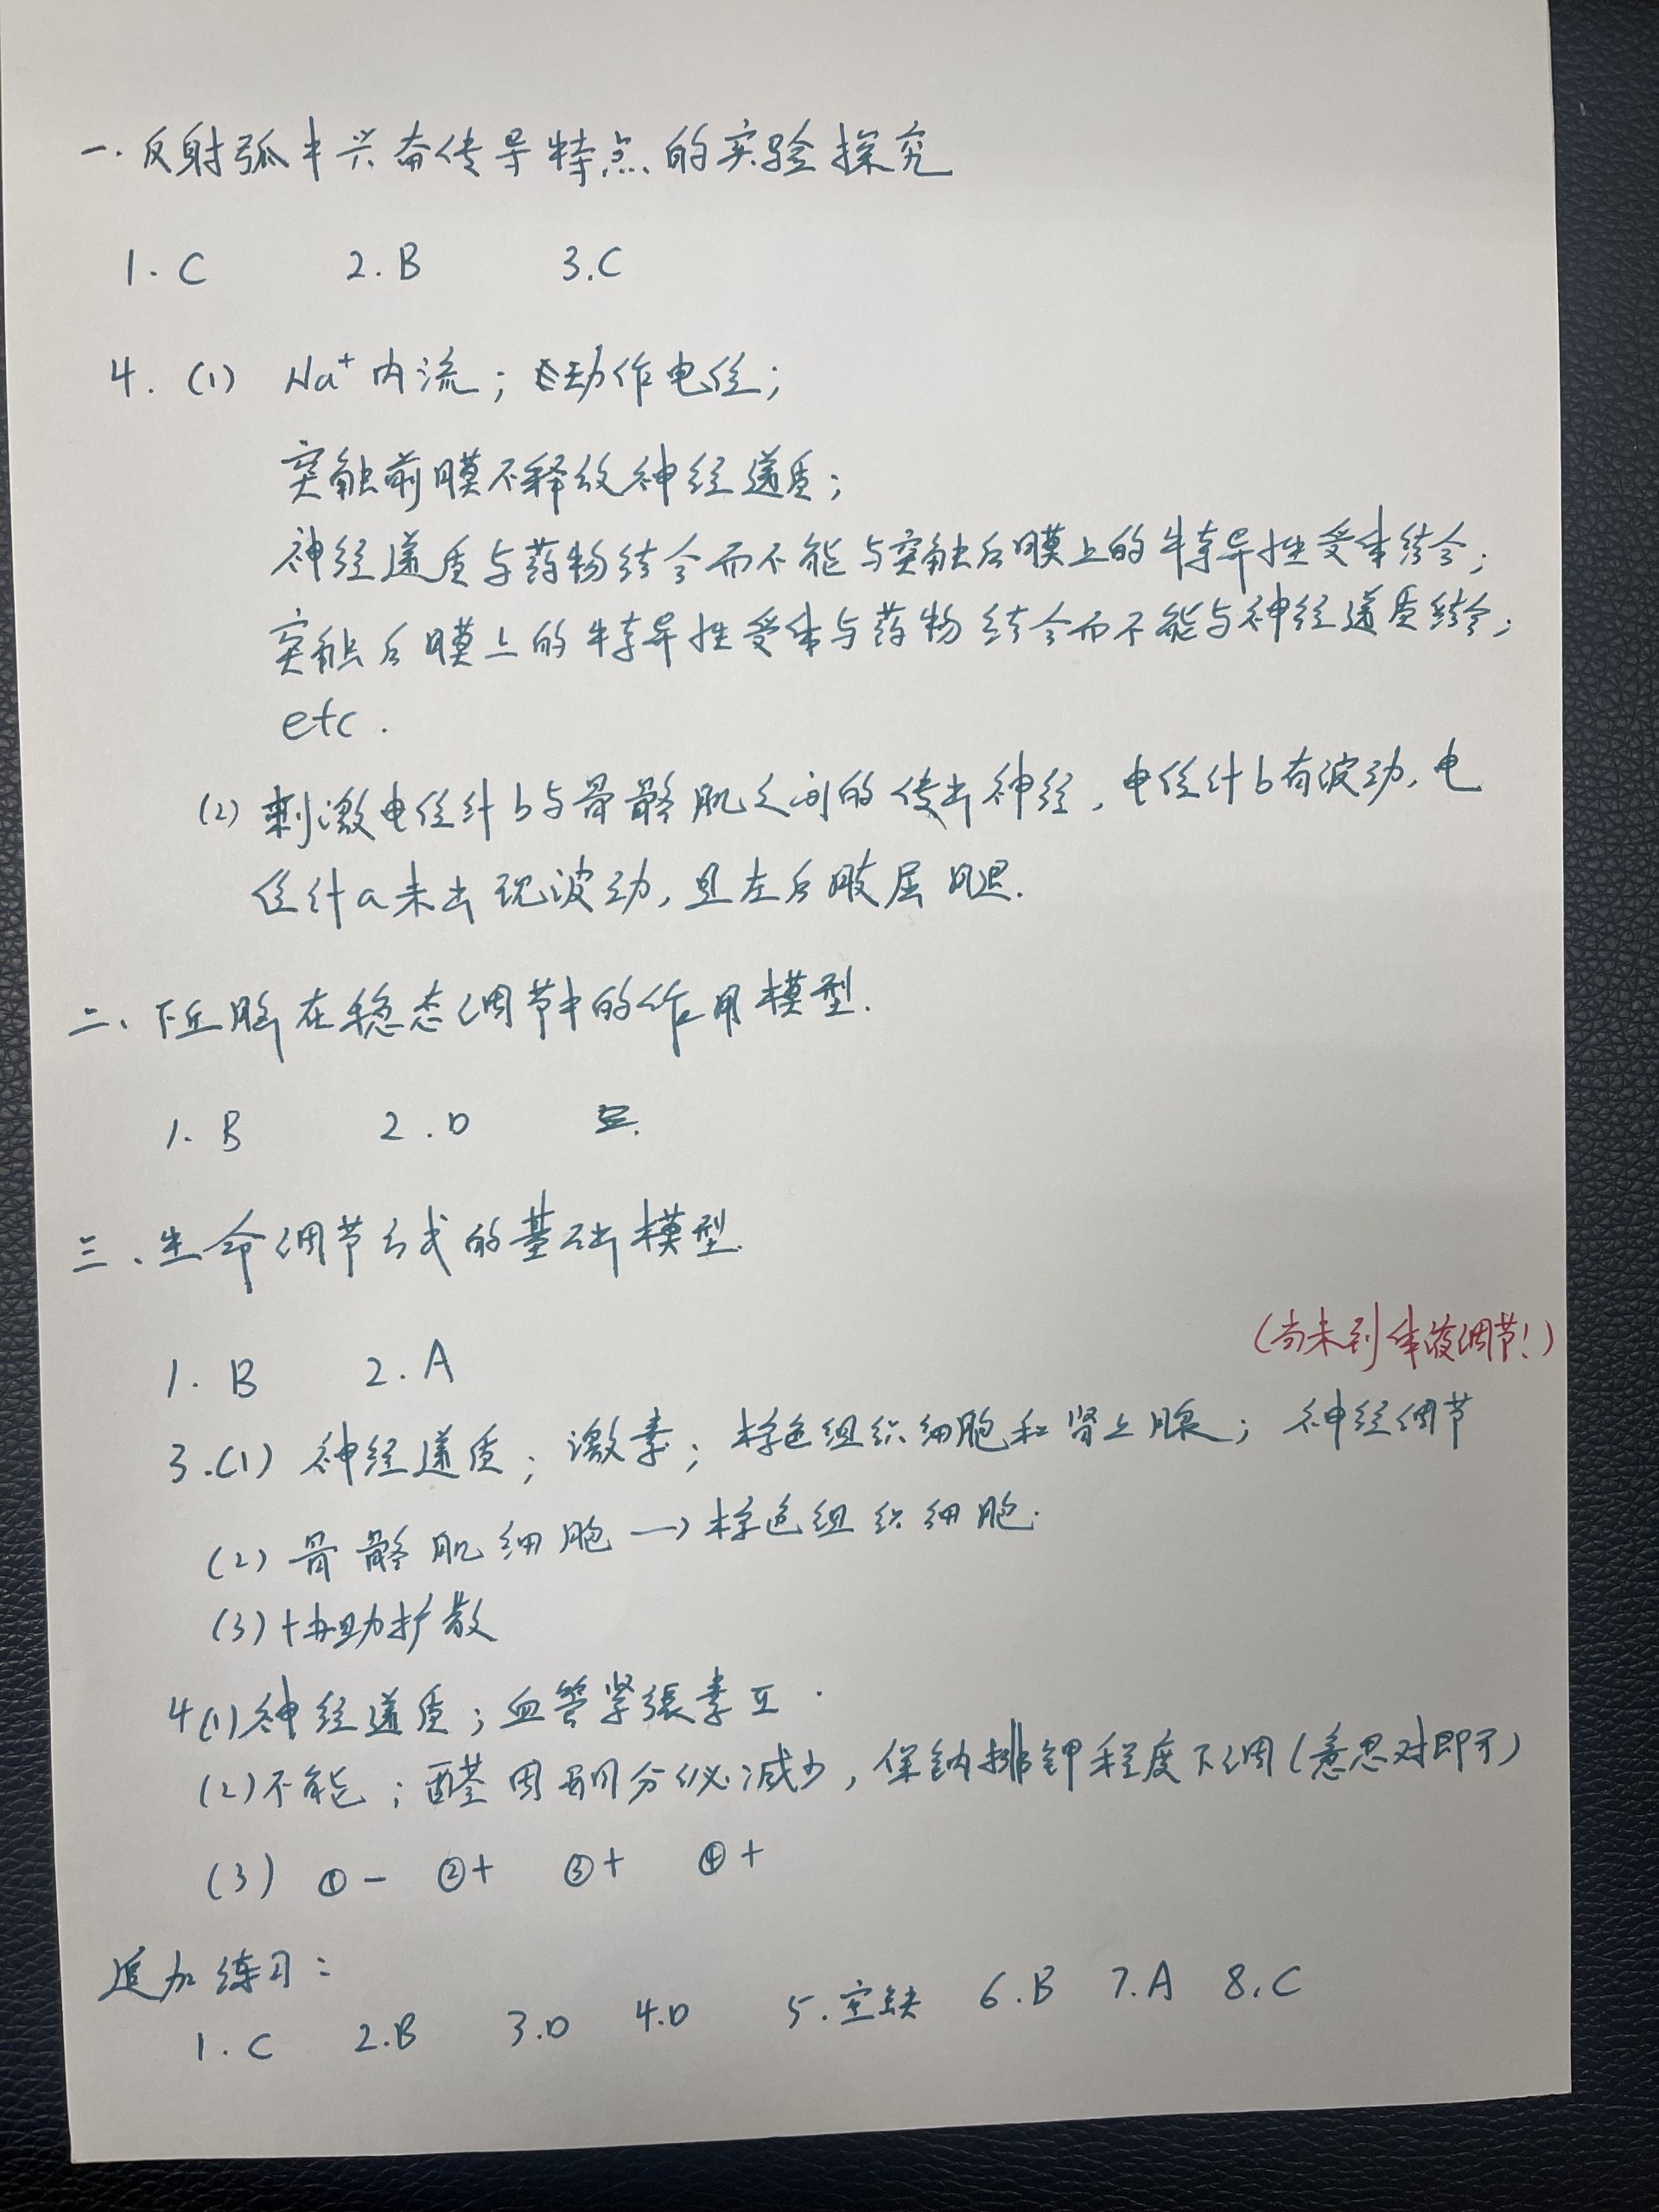 一. 反射弧中兴奋传导特点的实验探究
1. C 2. B 3. C
4. (1) Na⁺内流; 动作电位;
突触前膜不释放神经递质;
神经递质与药物结合而不能与突触后膜上的特异性受体结合;
突触后膜上的特异性受体与药物结合而不能与神经递质结合;
etc.
(2) 刺激电位计b与骨骼肌之间的传出神经, 电位计b有波动, 电
位计a未出现波动, 且左后肢屈腿.
二、下丘脑在稳态调节中的作用模型.
1. B 2. D
三、生命调节方式的基础模型.
(尚未到体液调节!)
1. B 2. A
3.(1) 神经递质; 激素; 棕色组织细胞和肾上腺; 神经调节
(2) 骨骼肌细胞→棕色组织细胞.
(3) 协助扩散
4(1) 神经递质; 血管紧張素II.
(2) 不能; 醛固酮分泌减少, 保钠排钾程度下调(意思对即可)
(3) ①− ②+ ③+ ④+
追加练习:
1. C 2. B 3. D 4. D 5. 空缺 6. B 7. A 8. C